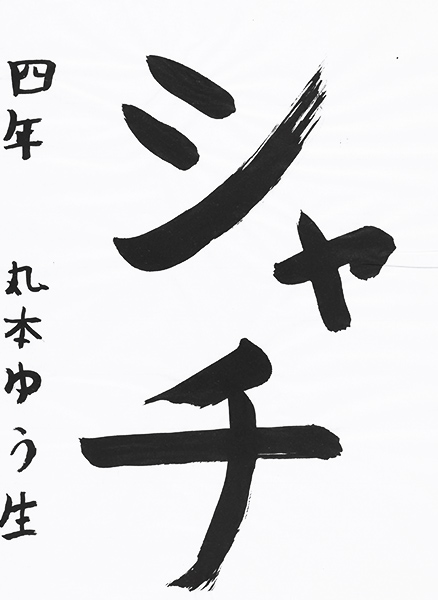 シャチ
四年 丸本ゆう生